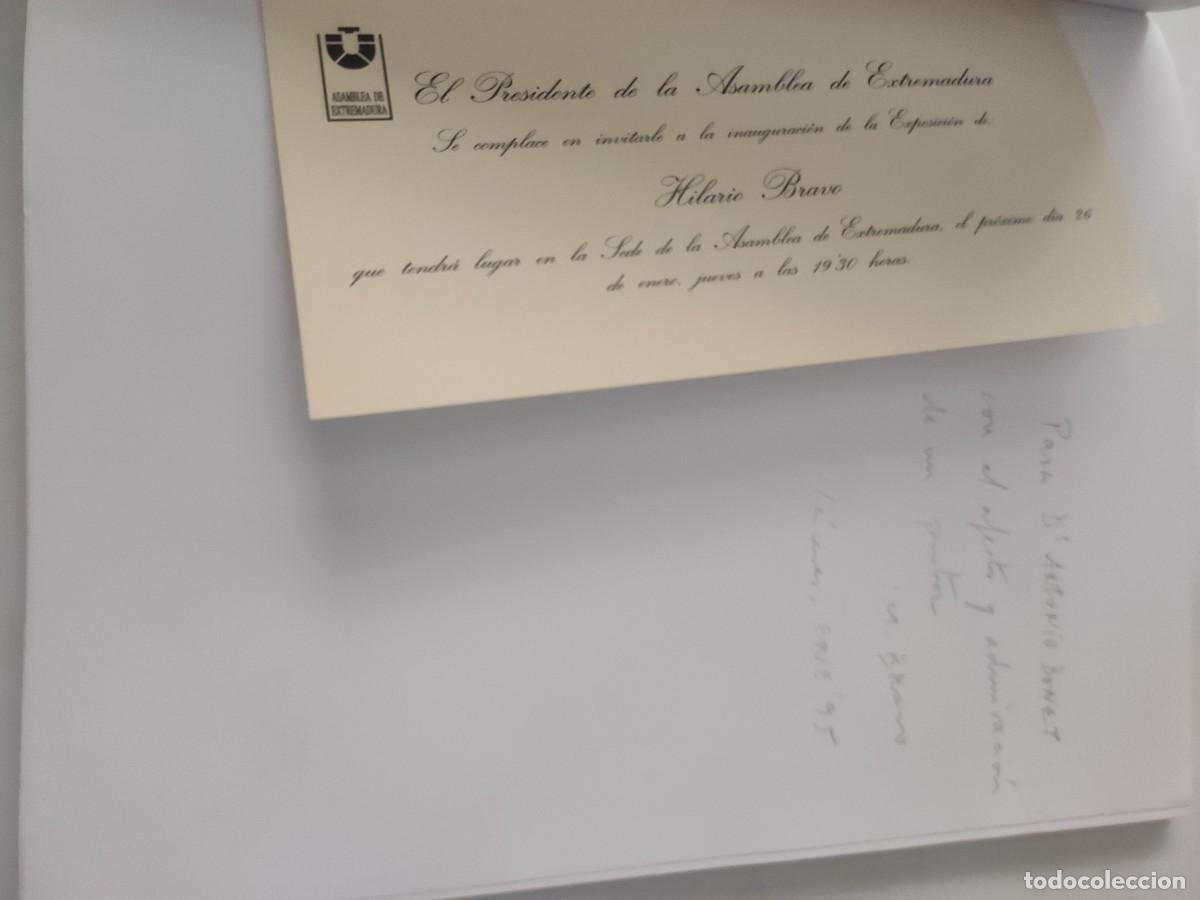 ASAMBLEA DE
EXTREMADURA
El Presidente de la Asamblea de Extremadura
Se complace en invitarle a la inauguración de la Exposición de:
Hilario Bravo
que tendrá lugar en la Sede de la Asamblea de Extremadura, el próximo día 26
de enero, jueves a las 19'30 horas.
Para D. ANTONIO BONET
con el afecto y admiración
de un pintor
H. BRAVO
'95
todocoleccion